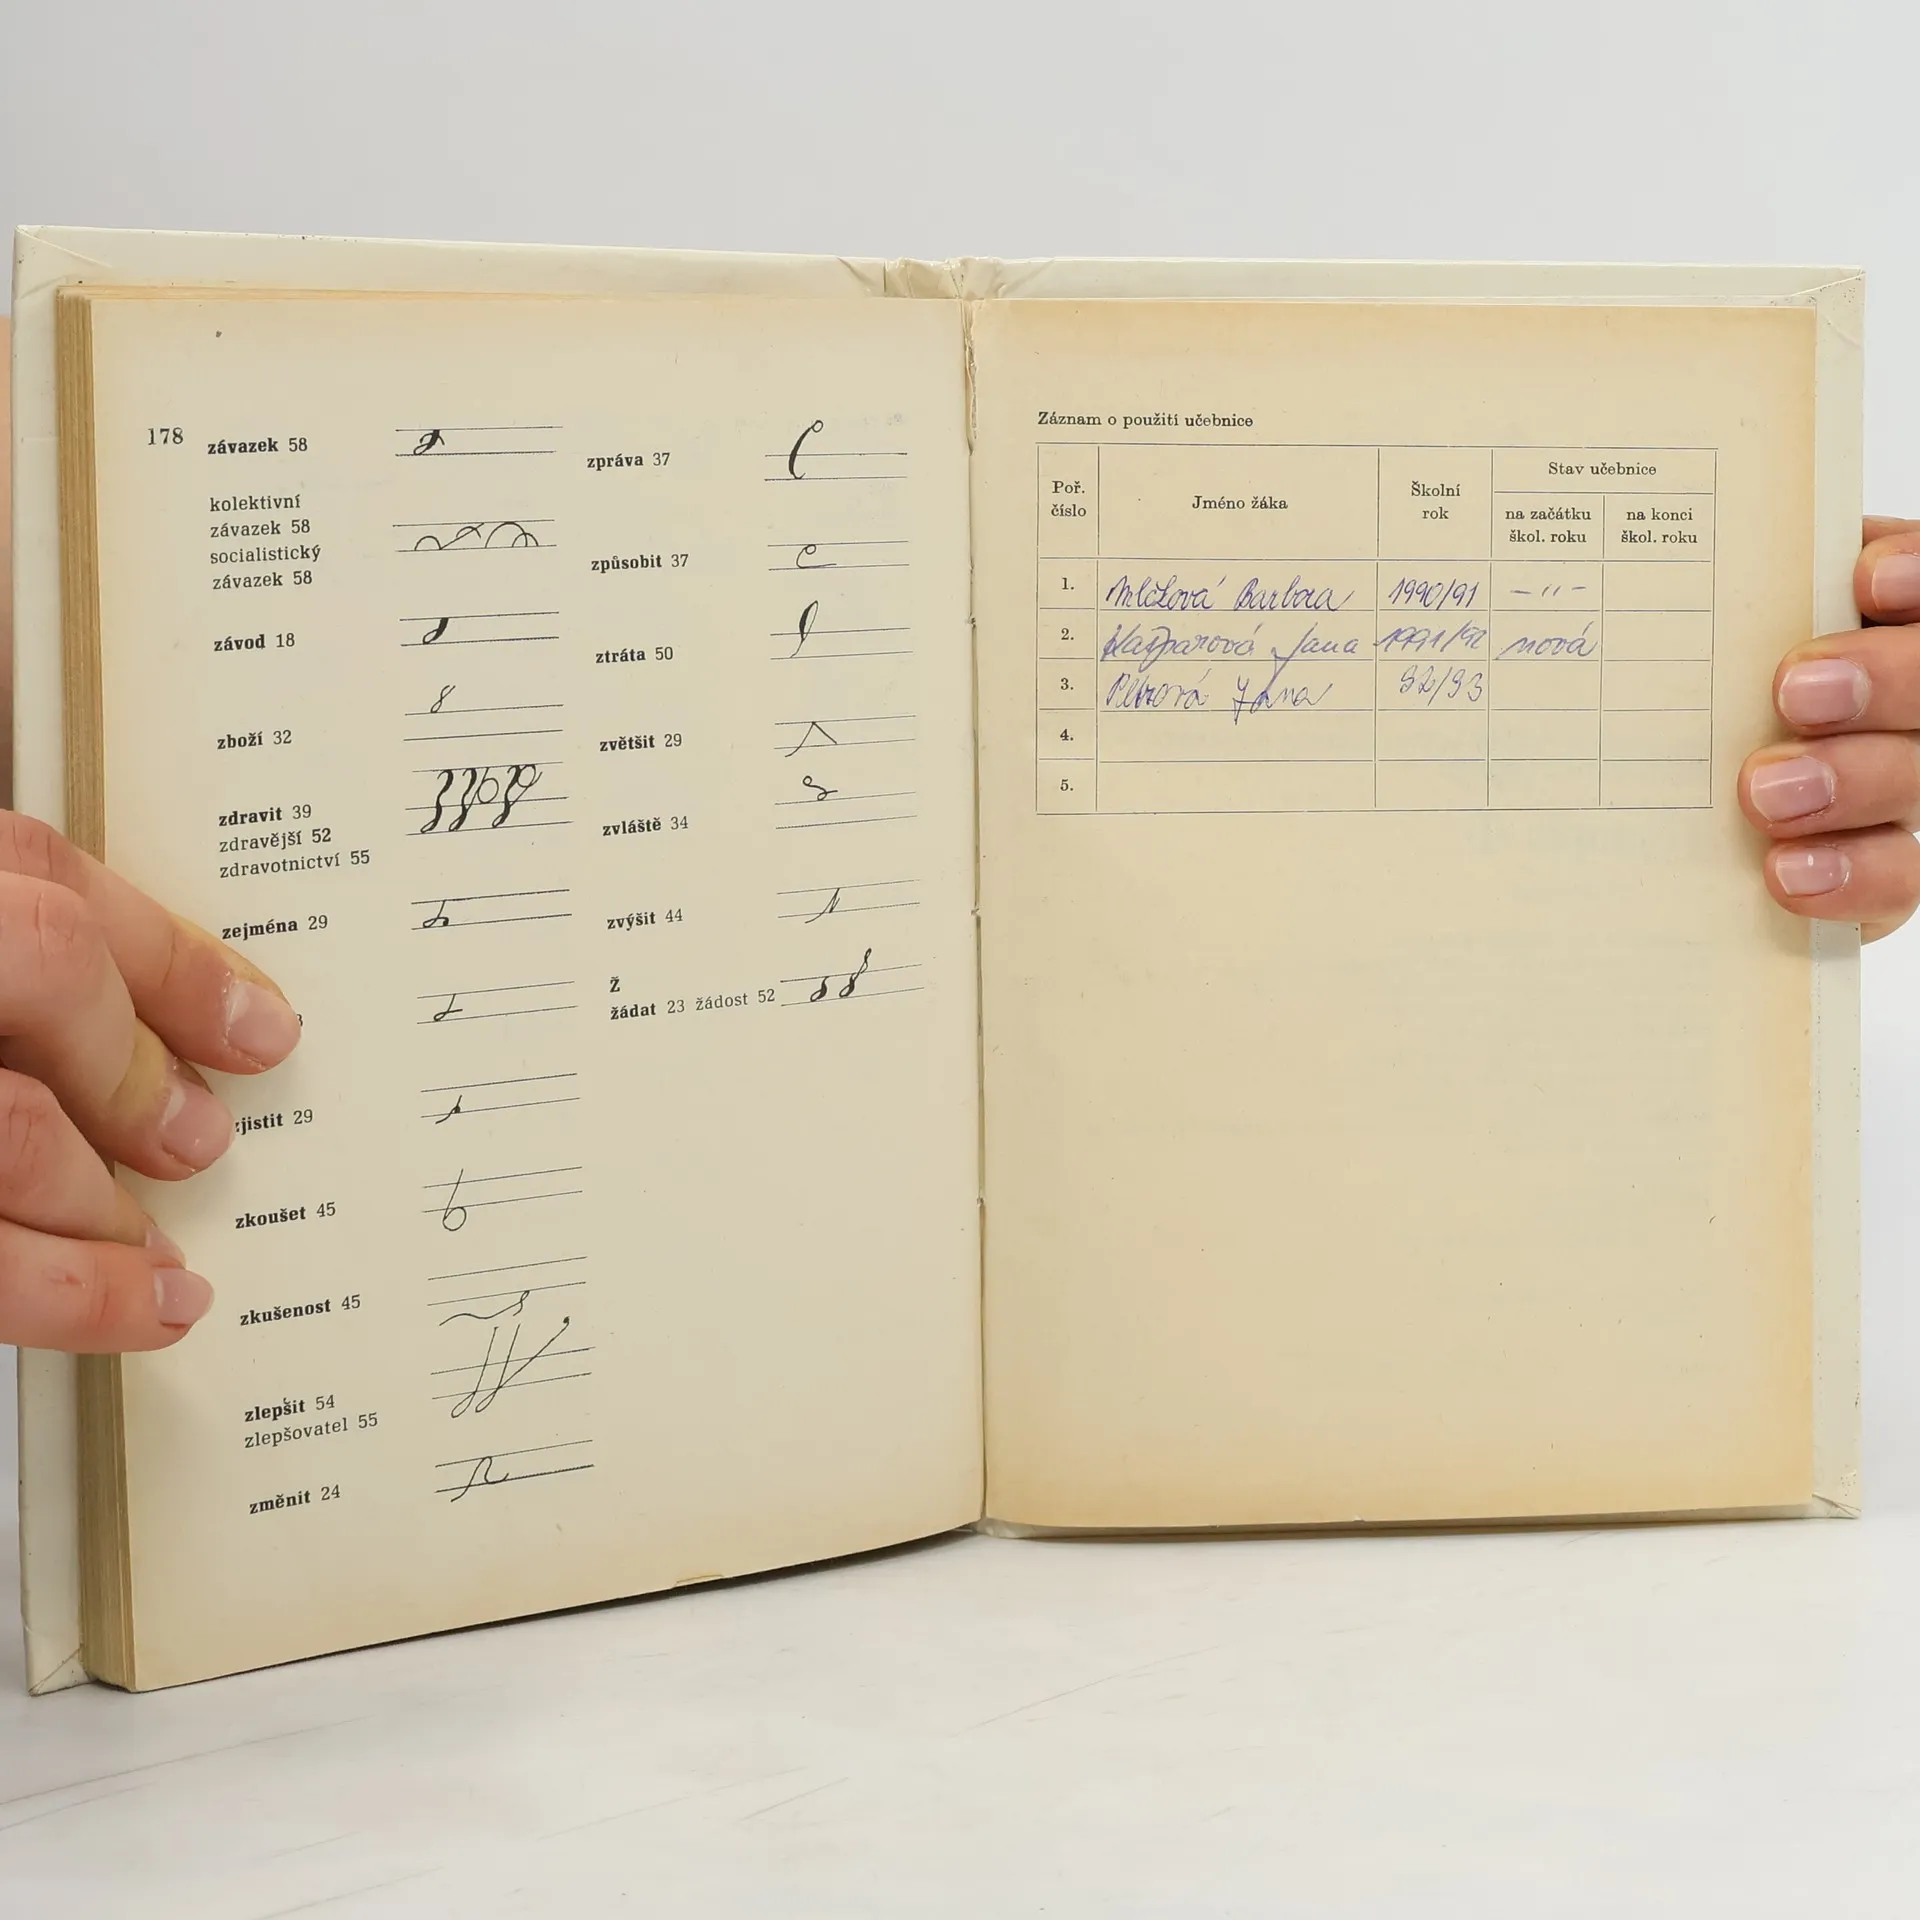 178
závazek 58
kolektivní
závazek 58
socialistický
závazek 58
závod 18
zboží 32
zdravit 39
zdravější 52
zdravotnictví 55
zejména 29
zjistit 29
zkoušet 45
zkušenost 45
zlepšit 54
zlepšovatel 55
změnit 24
zpráva 37
způsobit 37
ztráta 50
zvětšit 29
zvláště 34
zvýšit 44
Ž
žádat 23 žádost 52
Záznam o použití učebnice
Poř. číslo
Jméno žáka
Školní rok
Stav učebnice
na začátku škol. roku
na konci škol. roku
1. Barbora 1990/91 –〃 –
2. Kašparová Jana 1991/92 nová
3. Petrová Jana 92/93
4.
5.